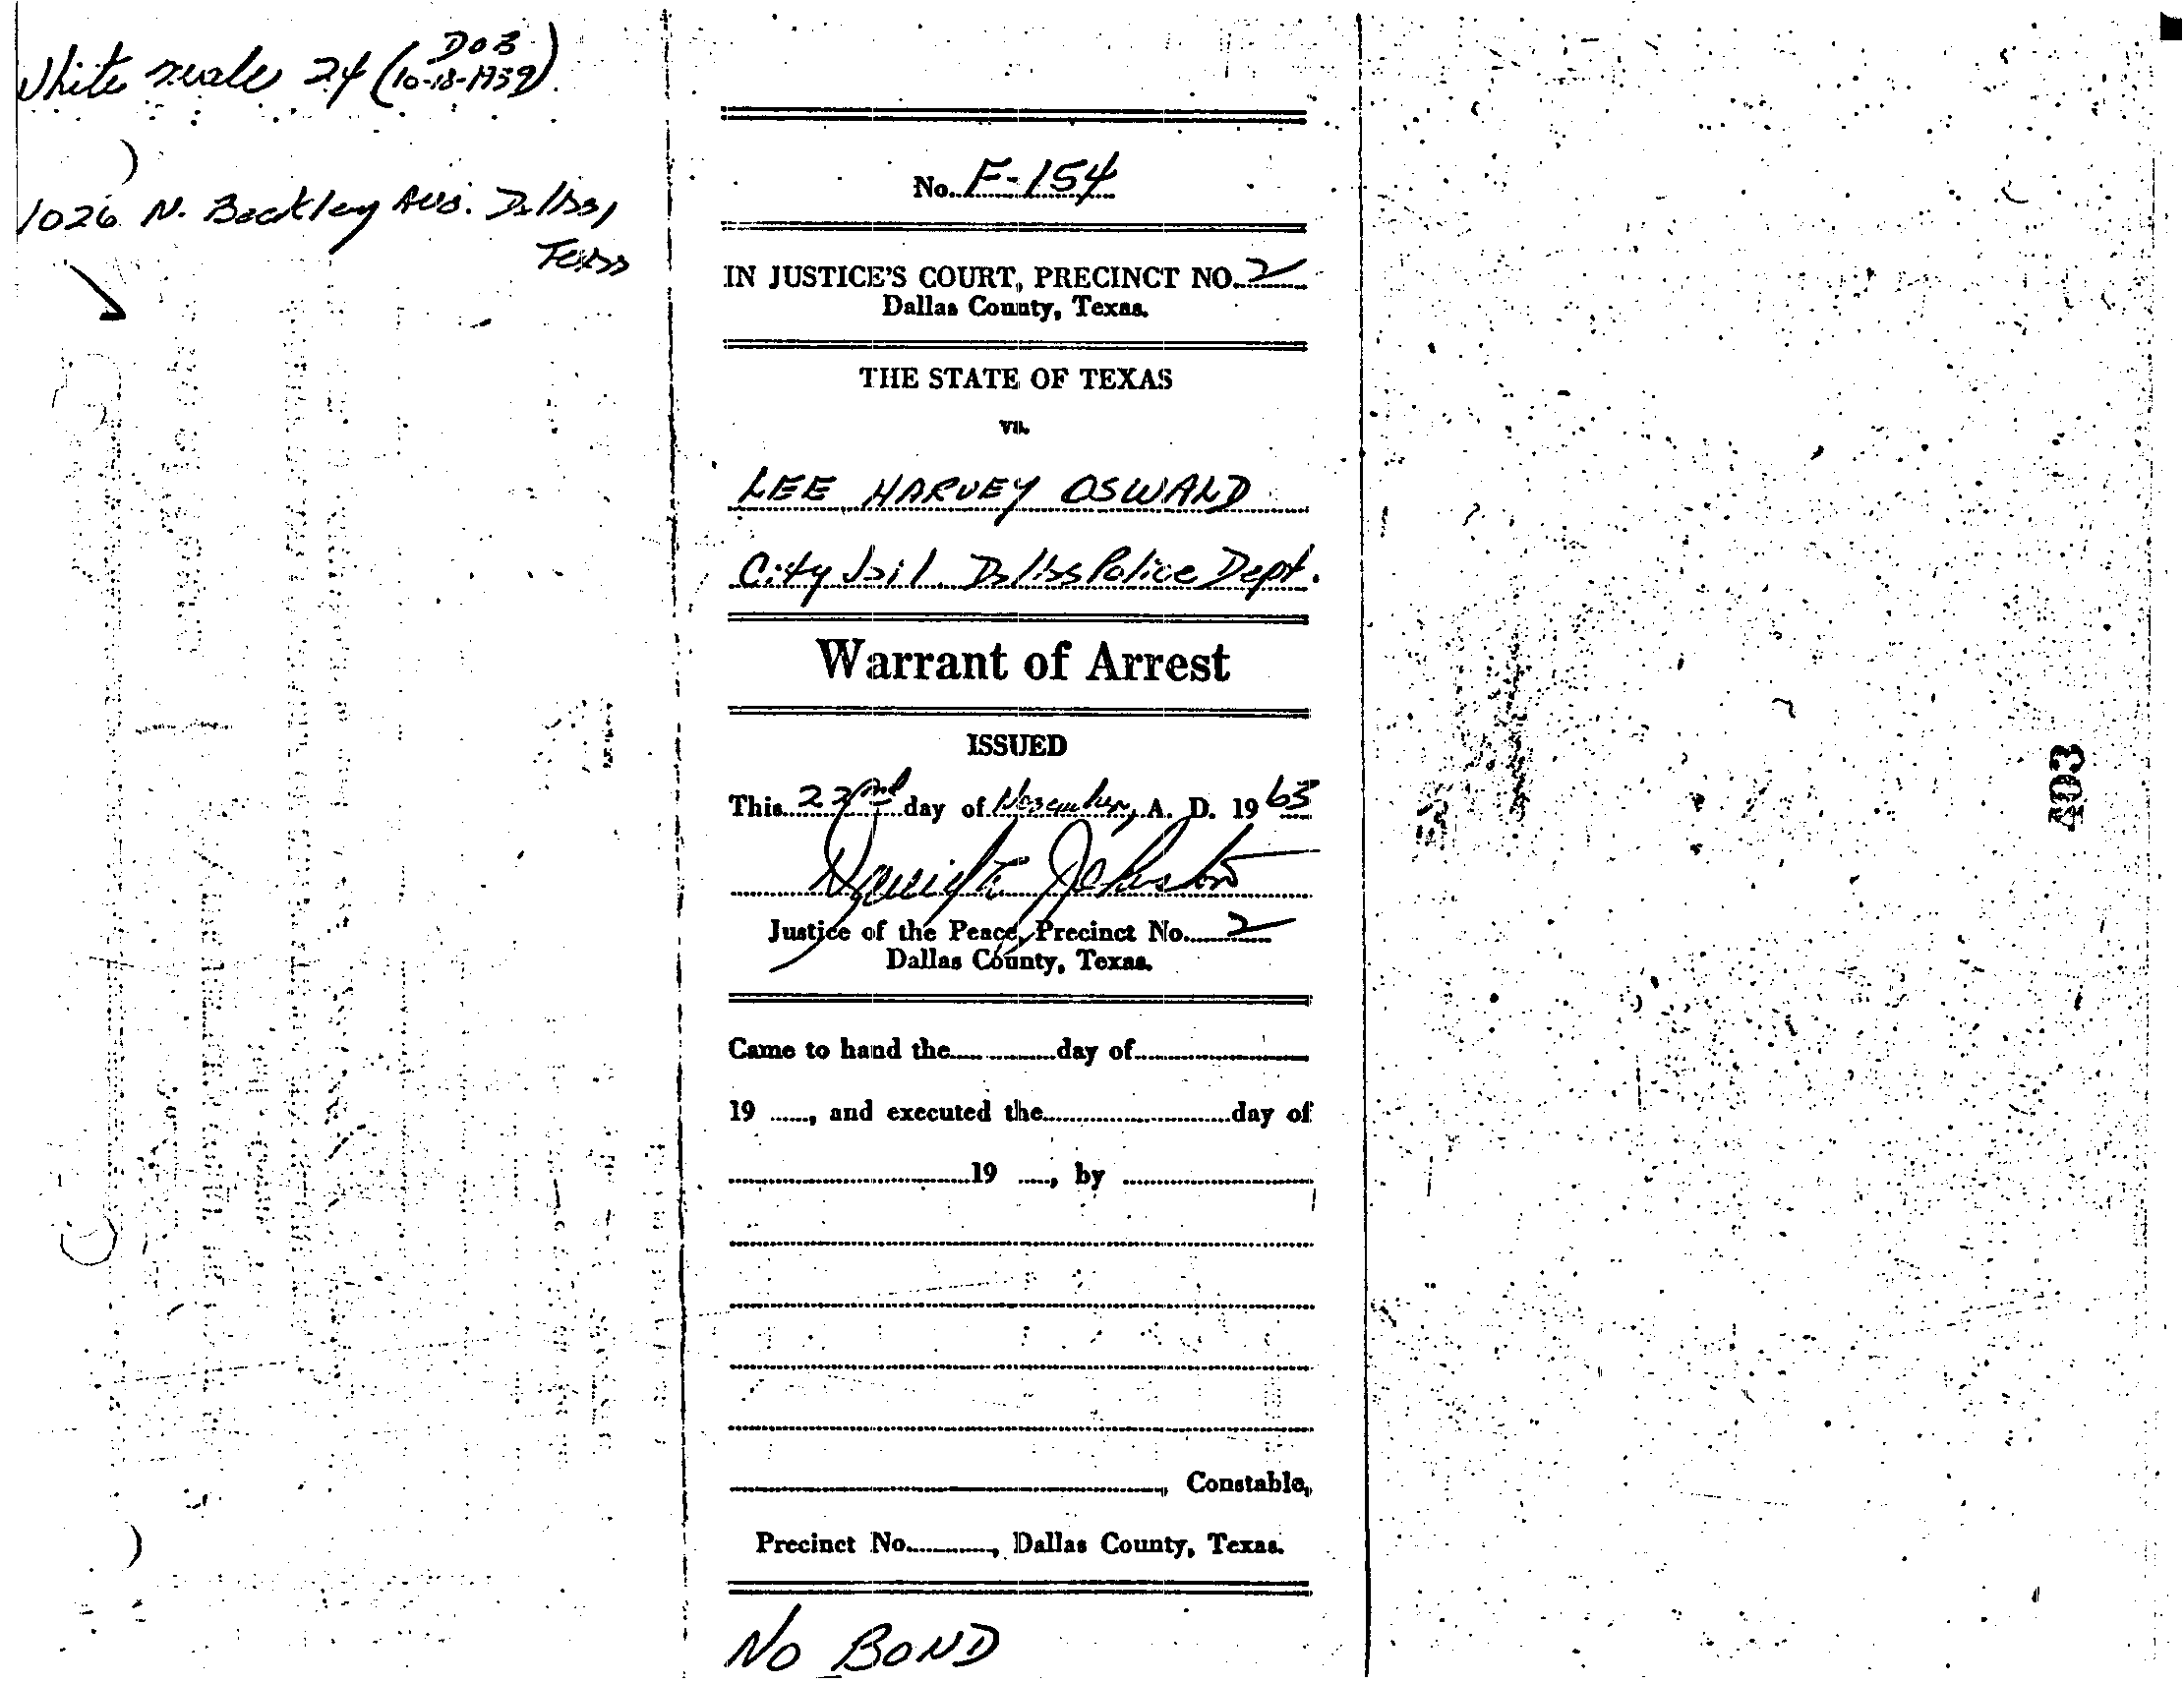 White male 24 (DOB
10-18-1939)
1026 N. Beckley Ave. Dallas,
Texas
No. F-154
IN JUSTICE'S COURT, PRECINCT NO. 2
Dallas County, Texas.
THE STATE OF TEXAS
vs.
LEE HARVEY OSWALD
City Jail Dallas Police Dept.
Warrant of Arrest
ISSUED
This 22nd day of November, A. D. 1963
David L. Johnston
Justice of the Peace, Precinct No. 2
Dallas County, Texas.
Came to hand the day of
19 , and executed the day of
19 , by
, Constable,
Precinct No. , Dallas County, Texas.
NO BOND
403